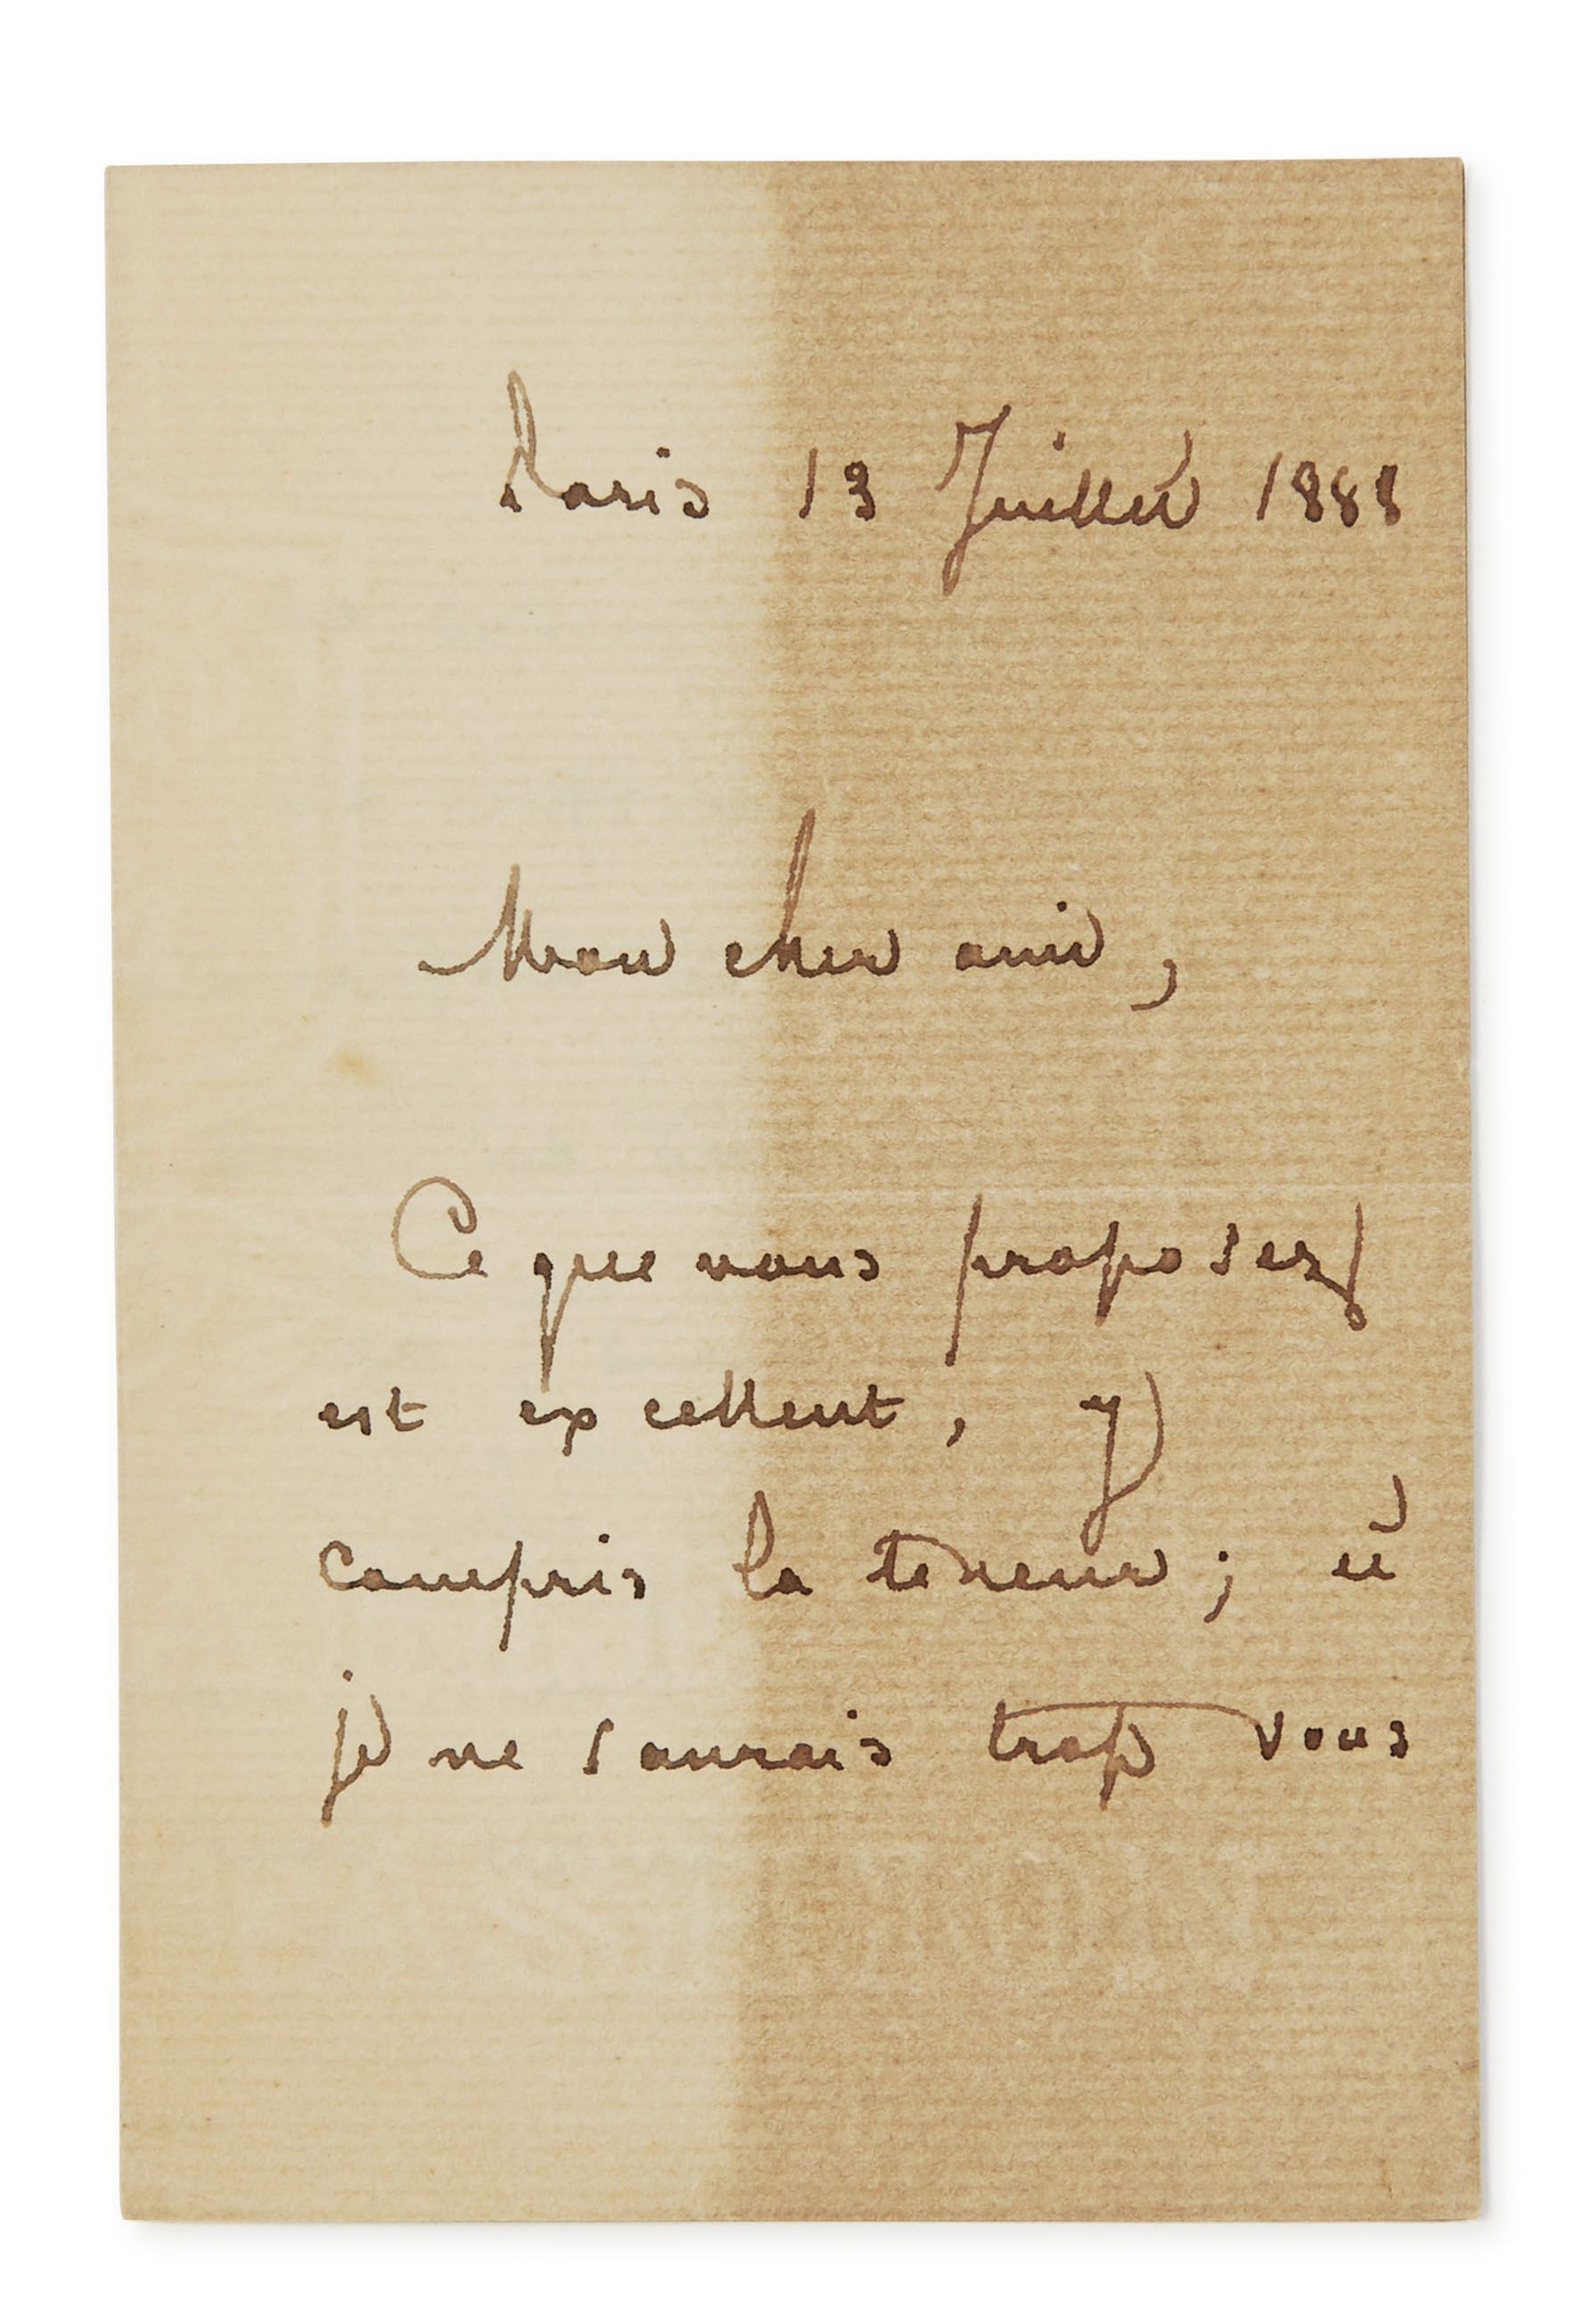 Paris 13 Juillet 1888
Mon cher ami,
Ce que vous proposez
est excellent, y
compris la teneur ; et
je ne saurais trop vous